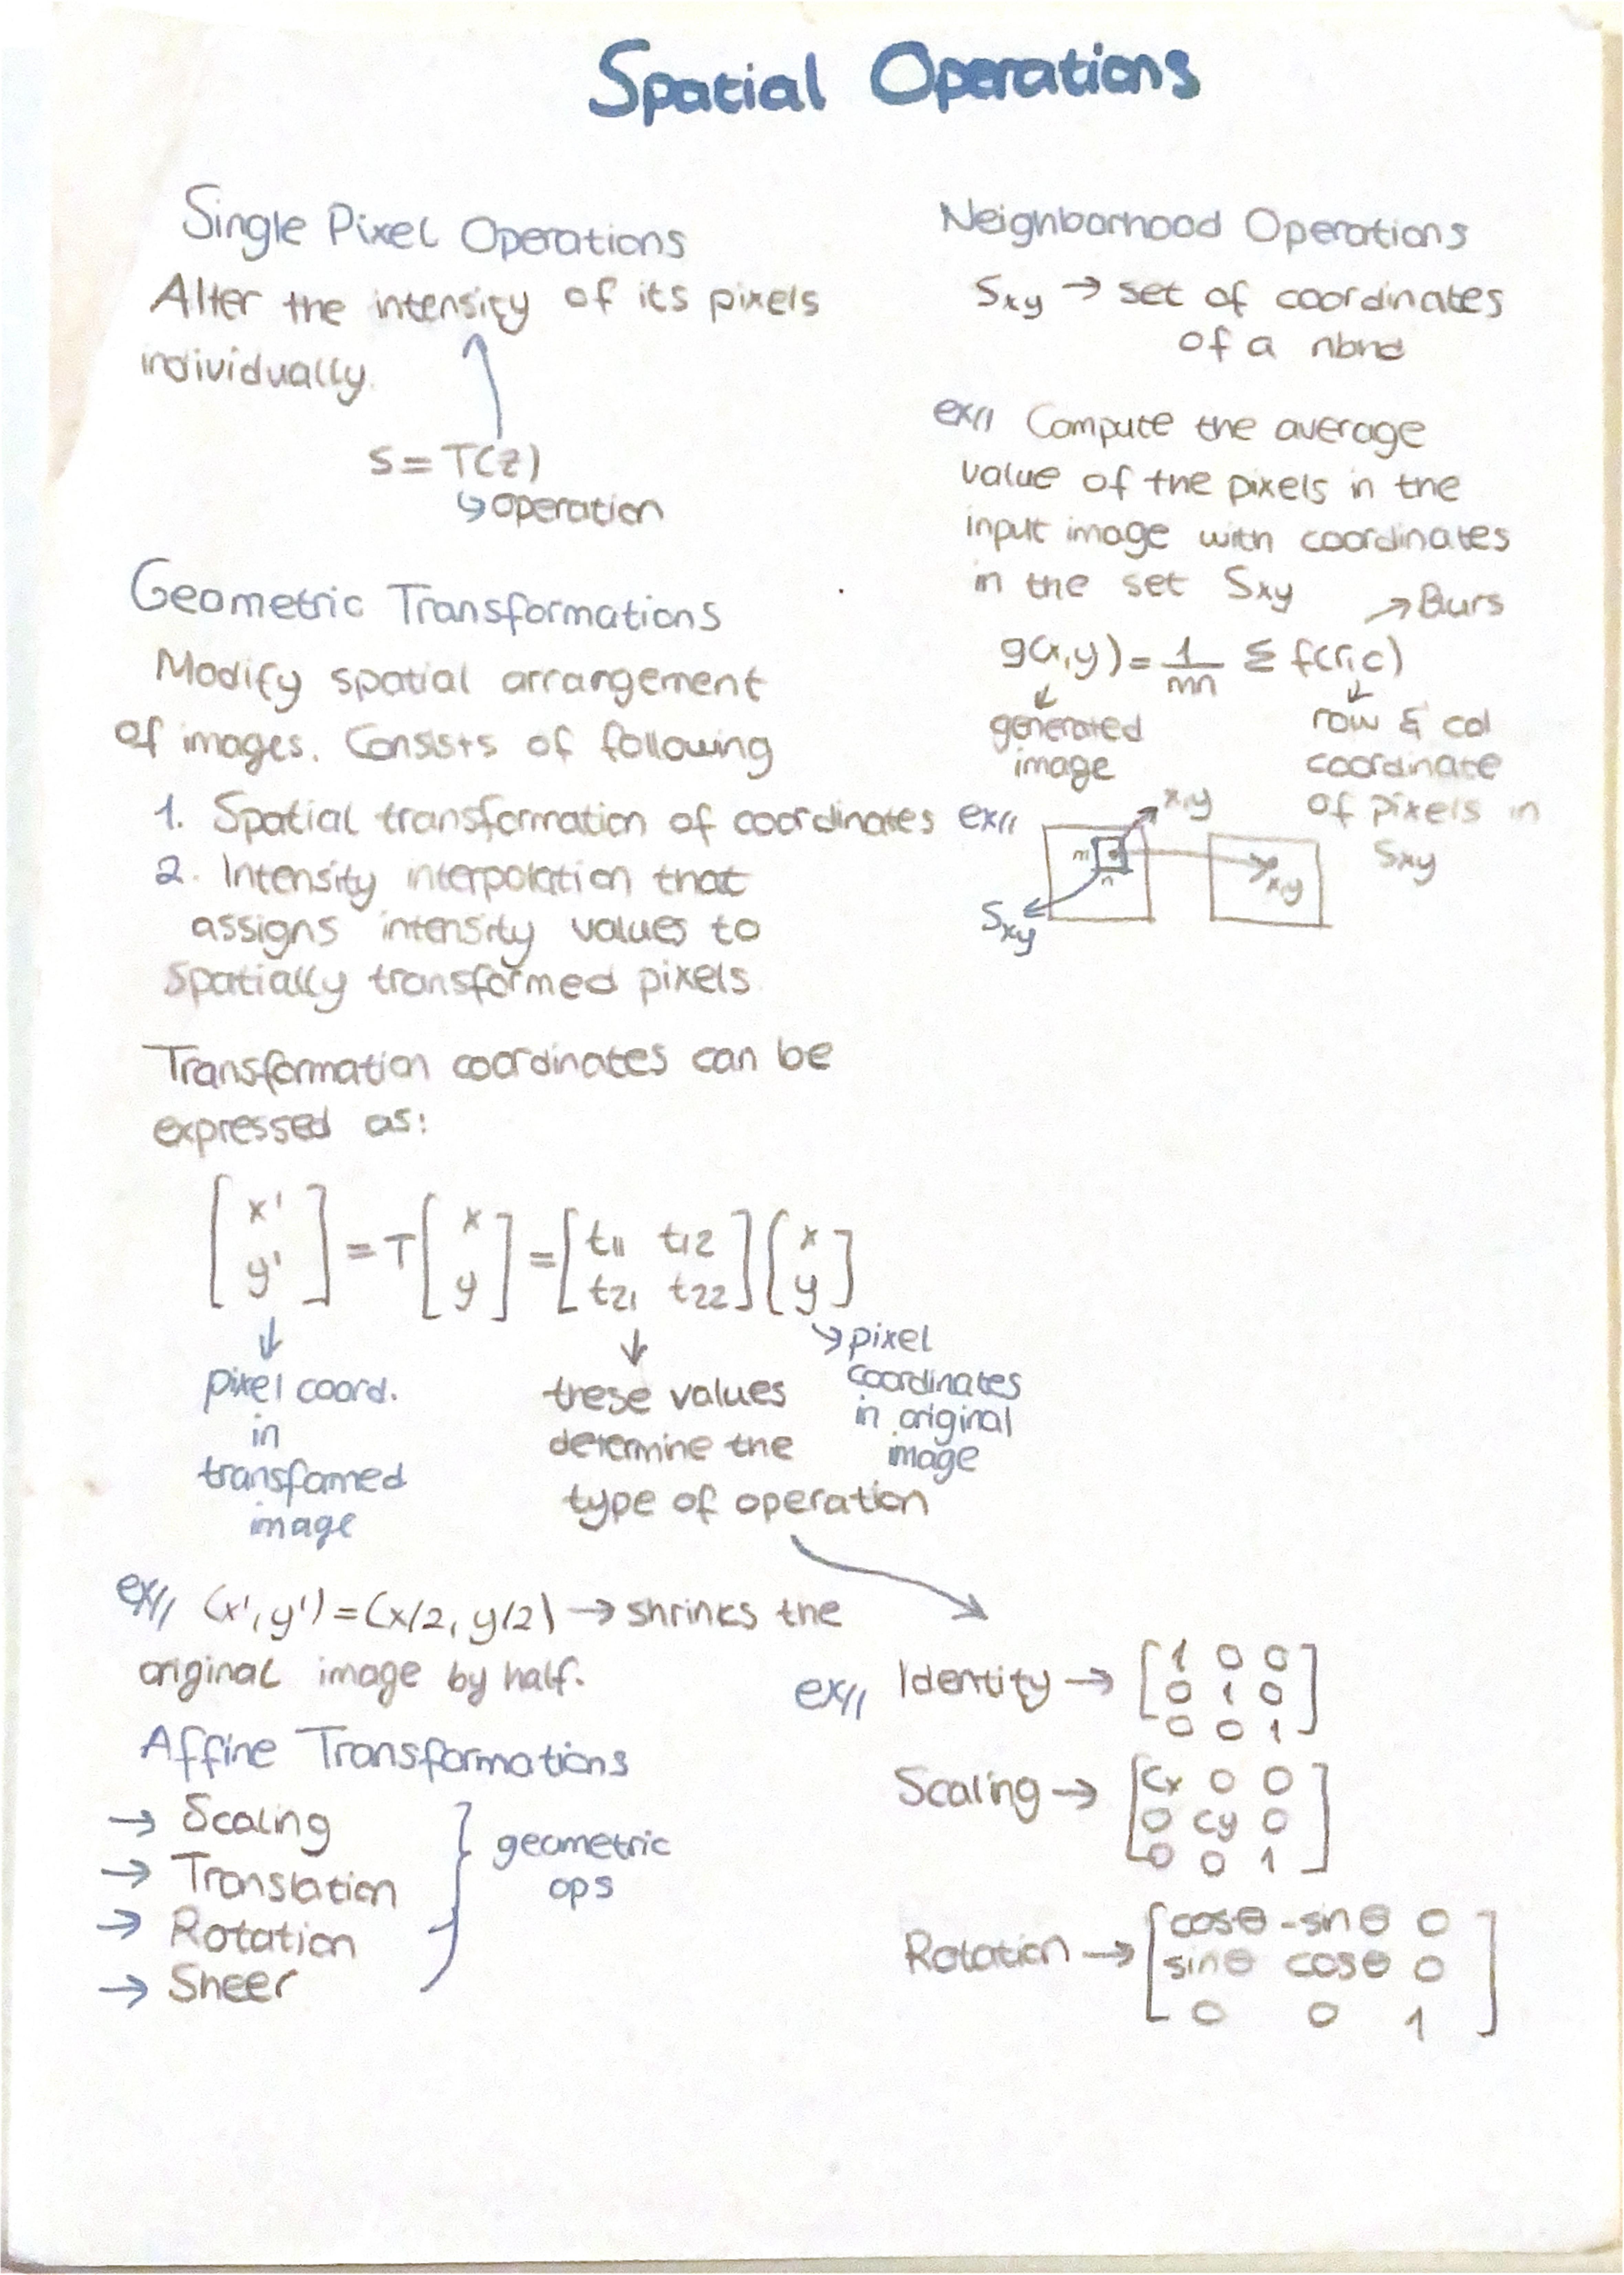 Spatial Operations
Single Pixel Operations
Alter the intensity of its pixels
individually.
s = T(z)
↳ operation
Geometric Transformations
Modify spatial arrangement
of images. Consists of following
1. Spatial transformation of coordinates
2. Intensity interpolation that
assigns intensity values to
spatially transformed pixels
Transformation coordinates can be
expressed as:
[x' y'] = T [x y] = [t11 t12 t21 t22] [x y]
↓ pixel coord.
in
transformed
image
↓ these values
determine the
type of operation
↘ pixel
coordinates
in original
image
ex// (x', y') = (x/2, y/2) → shrinks the
original image by half.
Affine Transformations
→ Scaling
→ Translation
→ Rotation
→ Sheer
geometric
ops
Neighborhood Operations
Sxy → set of coordinates
of a nbhd
ex// Compute the average
value of the pixels in the
input image with coordinates
in the set Sxy
↗ Blurs
g(x,y) = 1/mn Σ f(r,c)
↓ generated
image
↓ row & col
coordinate
of pixels in
Sxy
ex//
x,y
m
n
Sxy
x,y
ex// Identity → [1 0 0
0 1 0
0 0 1]
Scaling → [cx 0 0
0 cy 0
0 0 1]
Rotation → [cosθ -sinθ 0
sinθ cosθ 0
0 0 1]